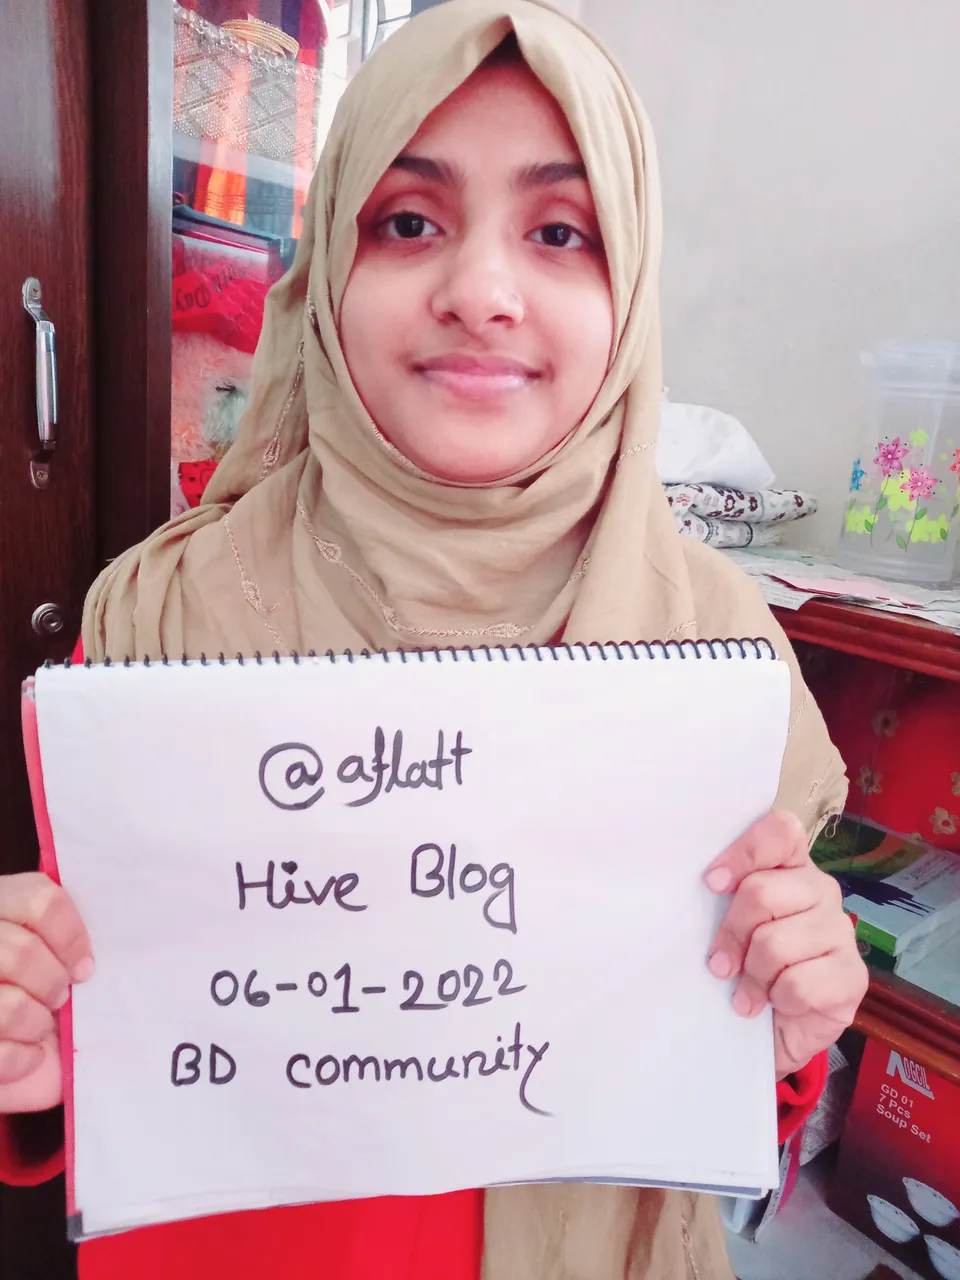 @aflatt
Hive Blog
06-01-2022
BD community
NOGCIL
GD 01
7 Pcs
Soup Set